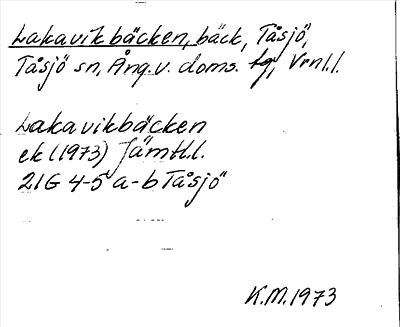 Lakavikbäcken, bäck, Tåsjö,
Tåsjö sn, Ång. v. doms. tg, Vrnl.l.
Lakavikbäcken
ek (1973) Jämtl.l.
21G 4-5 a-b Tåsjö
K.M. 1973